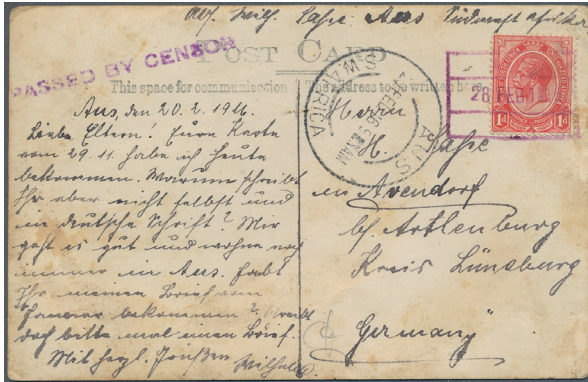 Abs. Wilh. Saße Aus Südwest Afrika
PASSED BY CENSOR
POST CARD
This space for communication
The address to be written here
AUS
S.W. AFRICA
28 FEB
1d 1d
Aus, den 20.2.1916.
Liebe Eltern! Eure Karte
vom 29.11. habe ich heute
bekommen. Warum schreibt
Ihr aber nicht selbst und
in deutsche Schrift? Mir
geht es gut und wohne noch
immer in Aus. Habt
Ihr meinen Brief vom
Januar bekommen?
doch bitte mal einen Brief.
Mit herzl. Grüßen Wilhelm.
Herrn
H. Saße
in Avendorf
b/ Artlenburg
Kreis Lüneburg
Germany